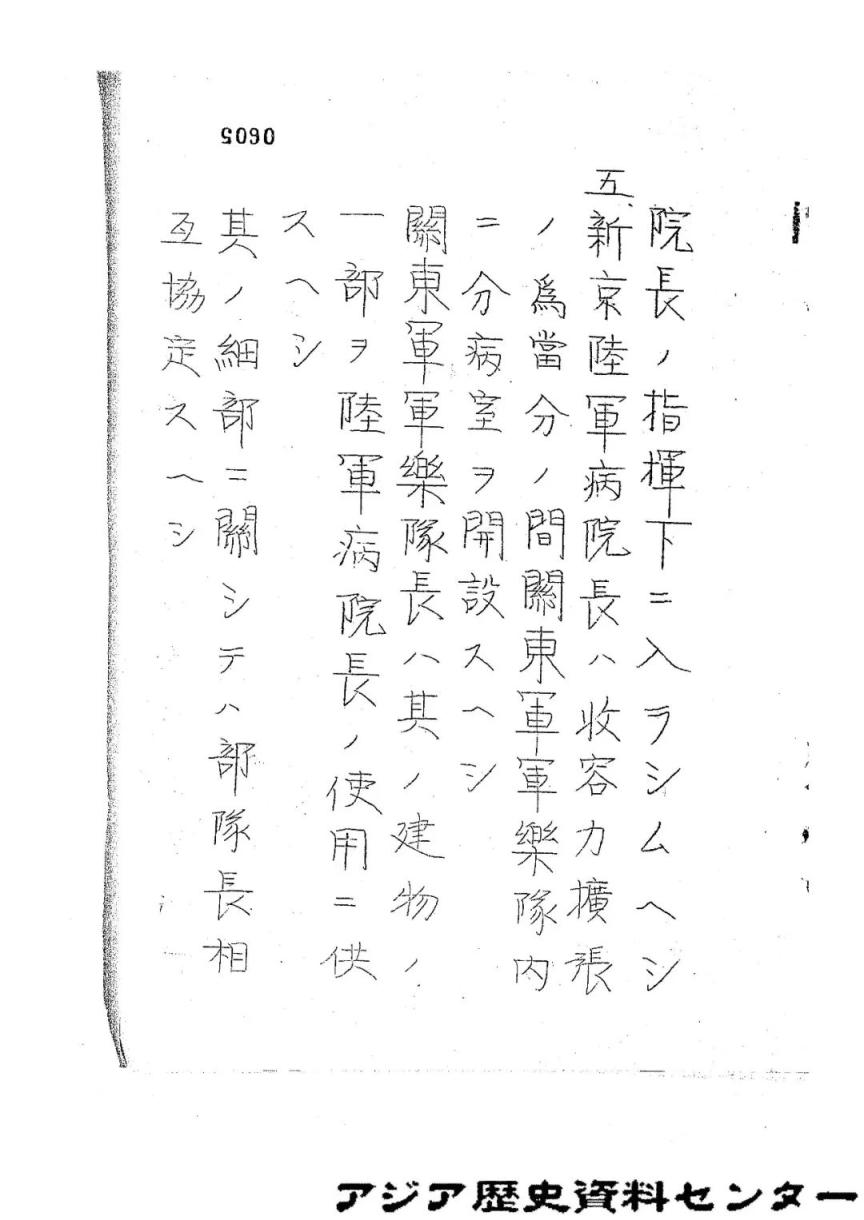 0605
院長ノ指揮下ニ入ラシムヘシ
五、新京陸軍病院長ハ收容力擴張
ノ爲當分ノ間關東軍軍樂隊内
ニ分病室ヲ開設スヘシ
關東軍軍樂隊長ハ其ノ建物ノ
一部ヲ陸軍病院長ノ使用ニ供
スヘシ
其ノ細部ニ關シテハ部隊長相
互協定スヘシ
アジア歴史資料センター